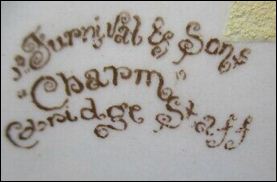 Furnival & Sons
"Charm"
Cobridge Staff